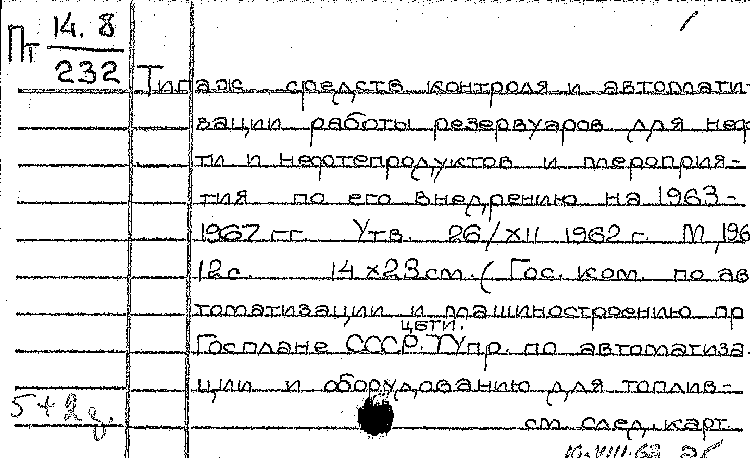 Пт 14.8
232
Типаж средств контроля и автомати-
зации работы резервуаров для неф
ти и нефтепродуктов и мероприя-
тия по его внедрению на 1963-
1967 гг. Утв. 26/XII 1962 г. М, 196
12 с. 14x23 см. (Гос. ком. по ав
томатизации и машиностроению пр
ЦБТИ.
Госплане СССР. ТУпр. по автоматиза
ции и оборудованию для топлив-
5+2д.
см. след. карт.